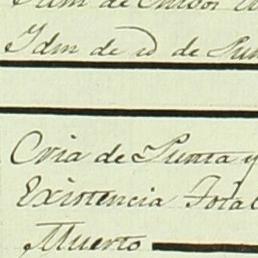 de
Idm de id de Pun
Cria de Punta y
Existencia Total
Muerto